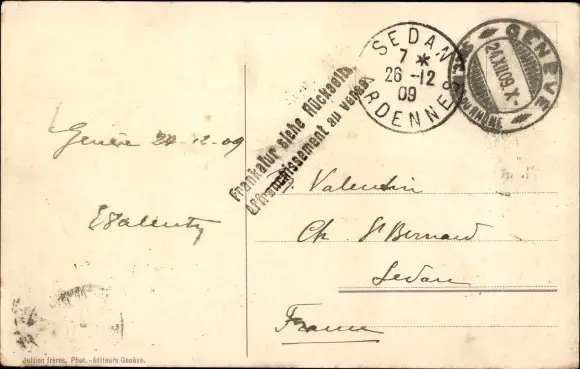 Genève 24-12-09
EValenty
Jullien frères, Phot.-éditeurs Genève.
Frankatur siehe Rückseite
Affranchissement au verso
SEDAN
7 *
26-12
09
ARDENNES
GENÈVE
24.XII.09.X-
Valentin
Ch. St Bernard
Sedan
France